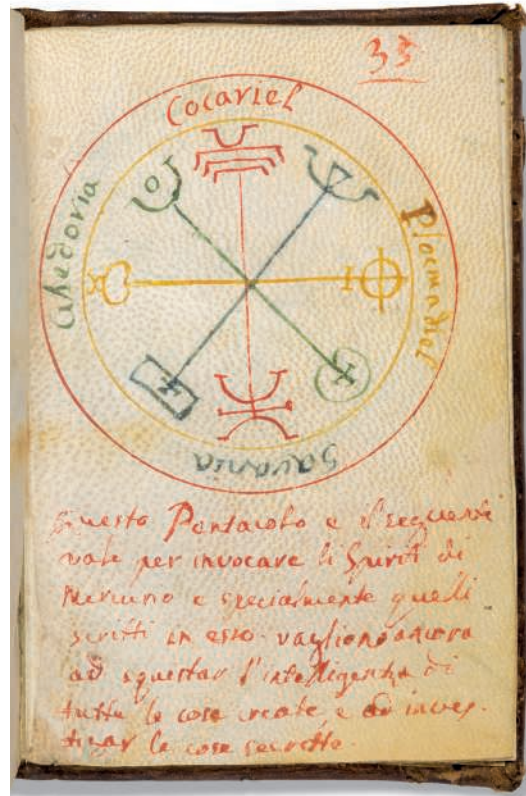 33
Cocariel
Ahedoria
Plocmadiel
Savania
Questo Pentacolo e il seguente
vale per invocare li Spiriti di
Mercurio e specialmente quelli
scritti in esso. vagliono ancora
ad aquistar l'intelligenza di
tutte le cose create e ad inves-
tigar le cose secrette.